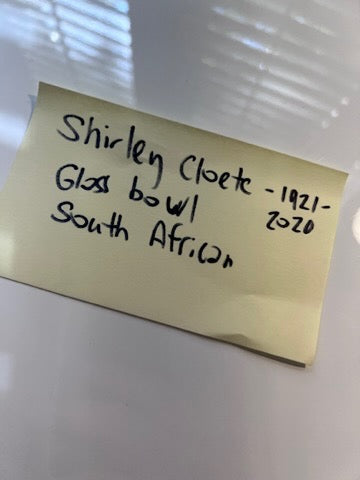 Shirley Cloete - 1921-
2020
Glass bowl
South African